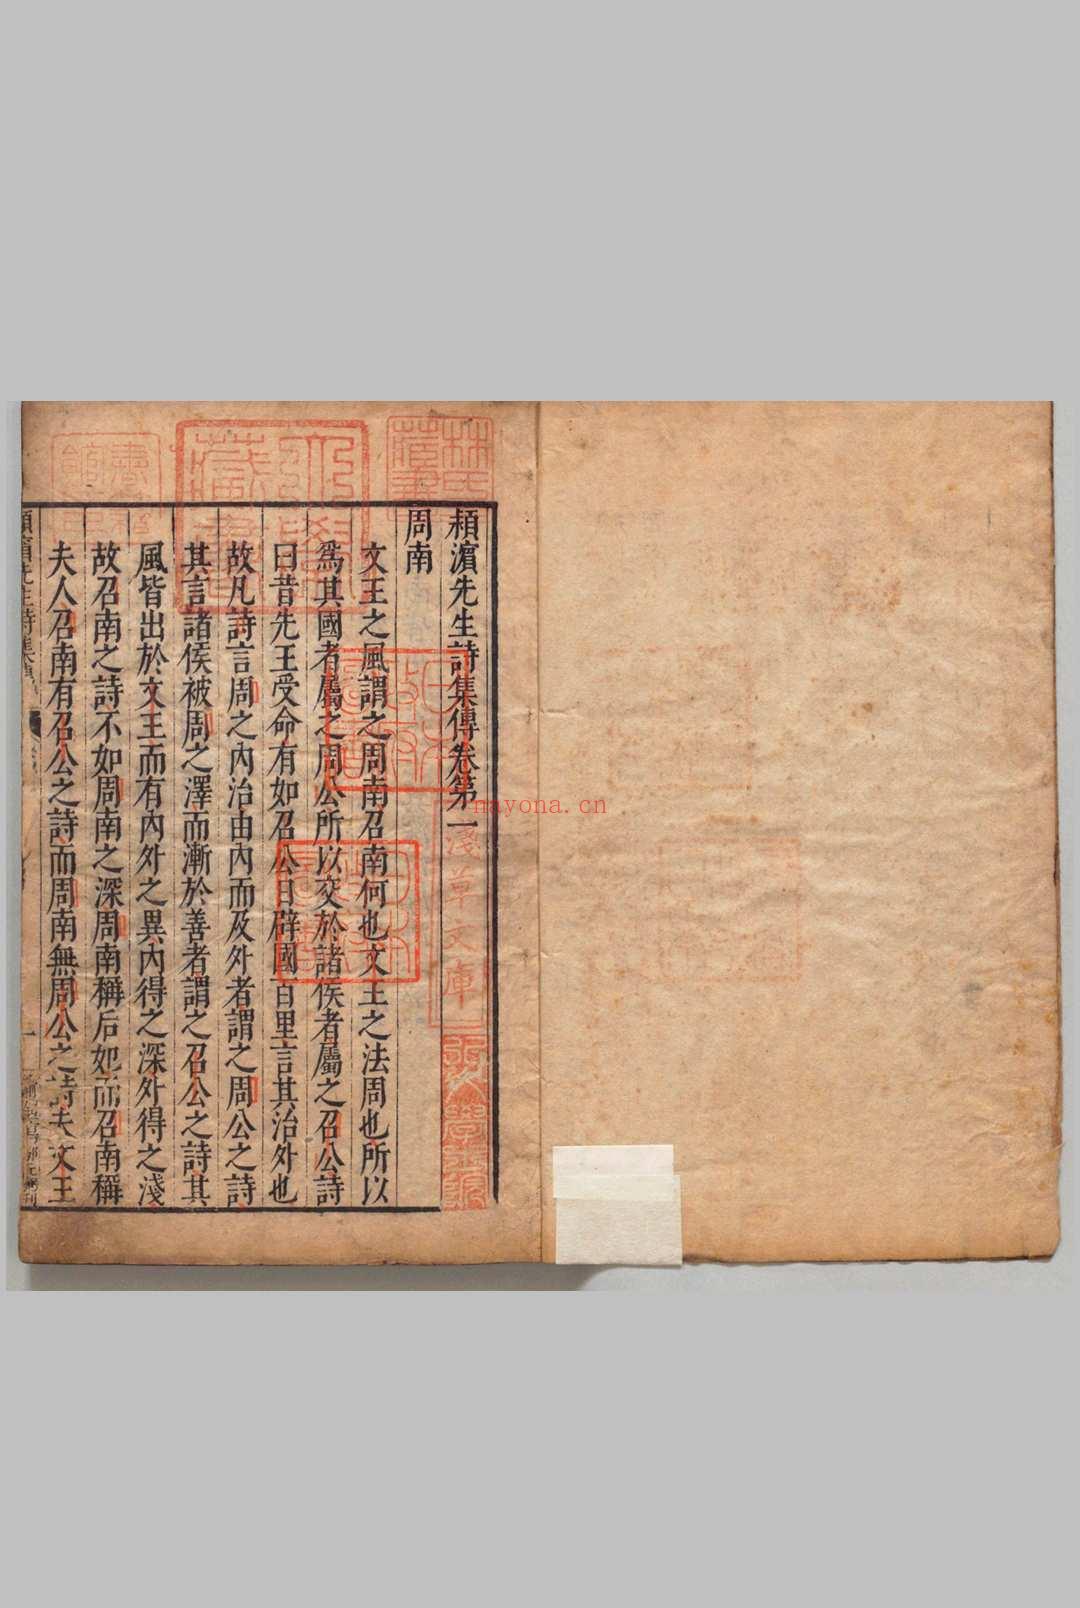 潁濵先生詩集傳卷第一
周南
文王之風謂之周南召南何也文王之法周也所以
爲其國者屬之周公所以交於諸侯者屬之召公詩
曰昔先王受命有如召公日辟國百里言其治外也
故凡詩言周之內治由內而及外者謂之周公之詩
其言諸侯被周之澤而漸於善者謂之召公之詩其
風皆出於文王而有內外之異內得之深外得之淺
故召南之詩不如周南之深周南稱后妃而召南稱
夫人召南有召公之詩而周南無周公之詩夫文王
淺草文庫
林氏藏書
日本政府圖書
nayona.cn